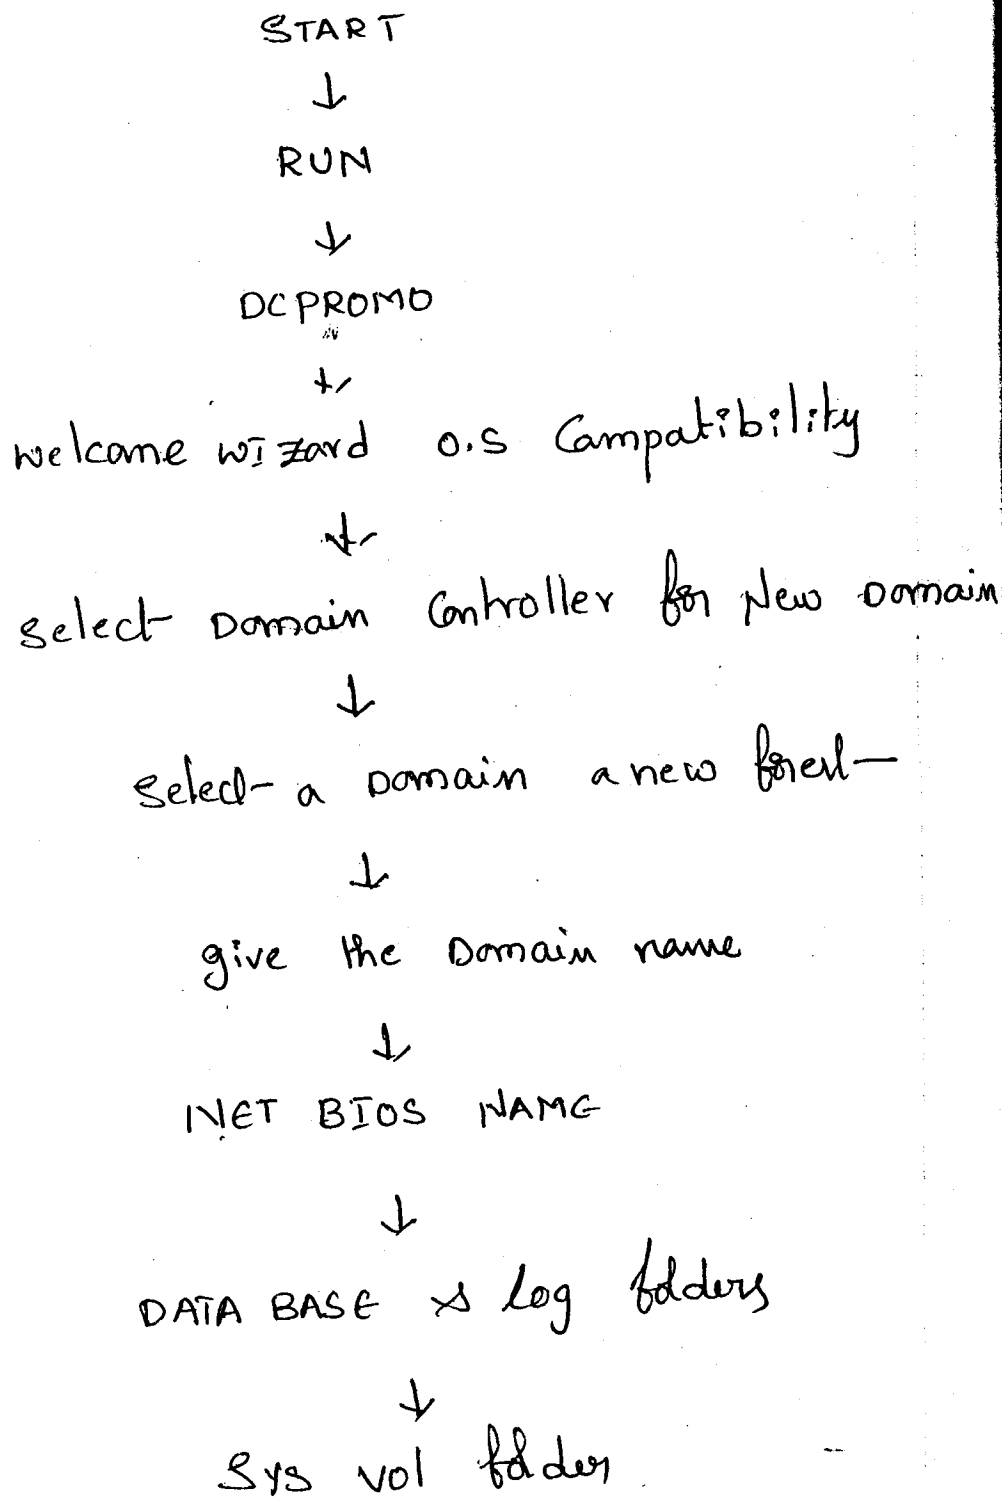 START
↓
RUN
↓
DCPROMO
↓
welcome wizard o.s Campatibility
↓
select Domain Controller for New Domain
↓
select a Domain a new forest
↓
give the Domain name
↓
NET BIOS NAME
↓
DATA BASE & log folders
↓
Sys vol folder